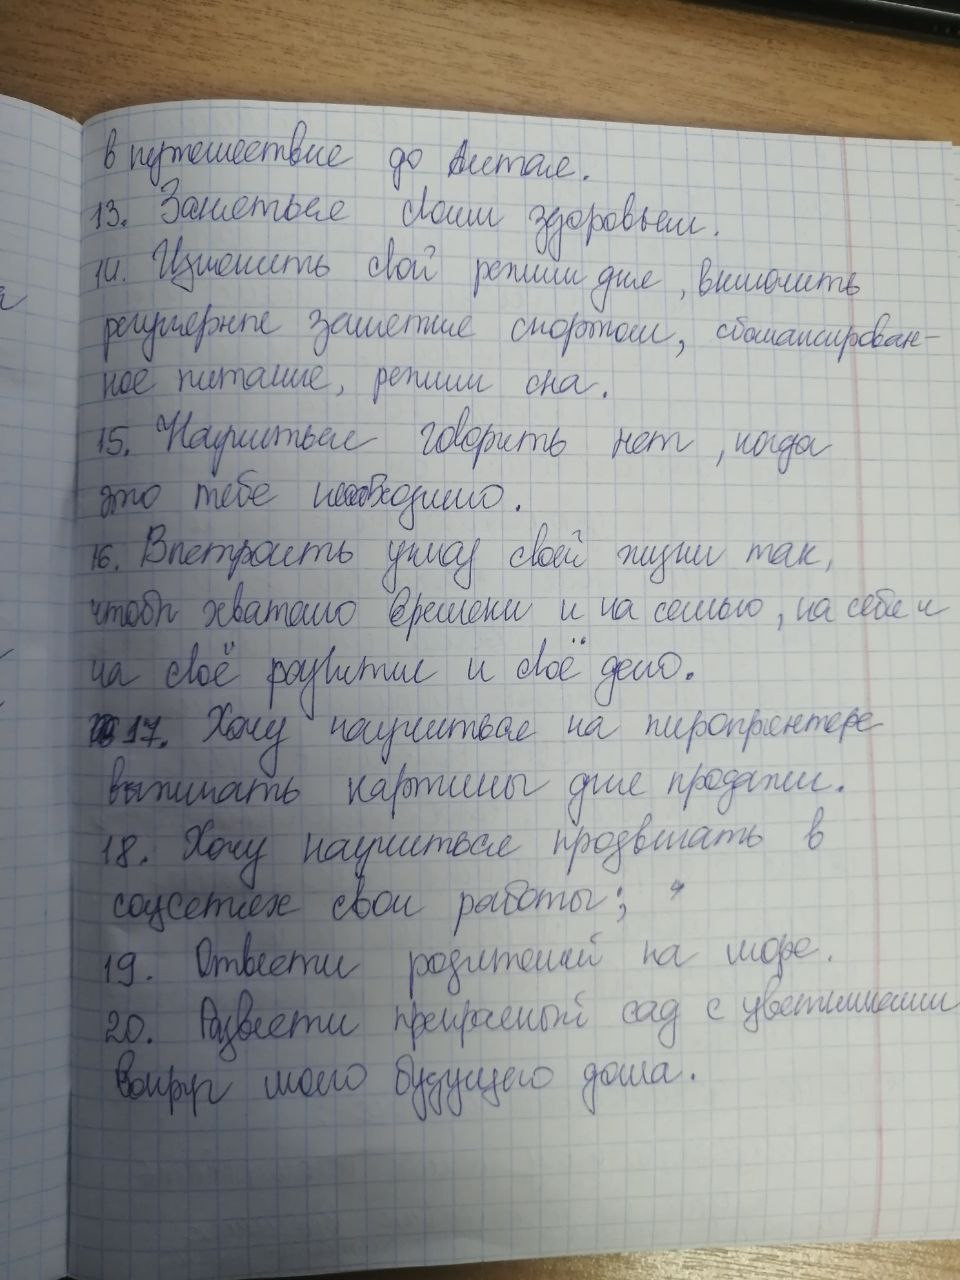 в путешествие до Алтая.
13. Заняться своим здоровьем.
14. Изменить свой режим дня, включить
регулярные занятие спортом, сбалансирован-
ное питание, режим сна.
15. Научиться говорить нет, когда
это тебе необходимо.
16. Выстроить уклад своей жизни так,
чтобы хватало времени и на семью, на себя и
на своё развитие и своё дело.
17. Хочу научиться на пиропринтере
выжигать картины для продажи.
18. Хочу научиться продвигать в
соцсетях свои работы;
19. Отвезти родителей на море.
20. Развести прекрасный сад с цветниками
вокруг моего будущего дома.